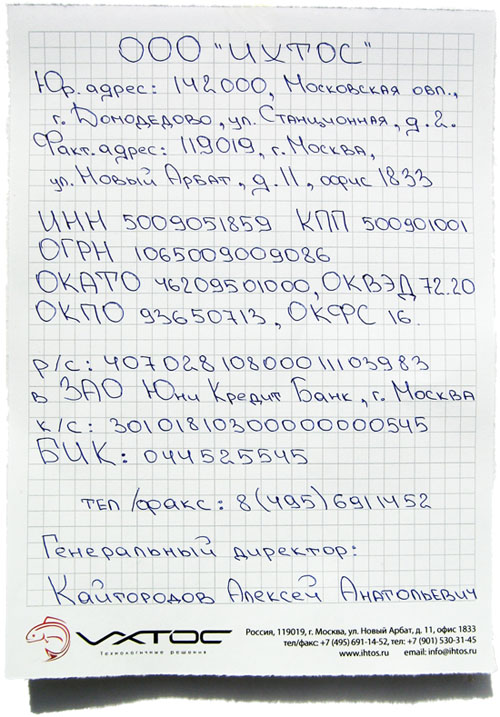 ООО "ИХТОС"
Юр. адрес: 142000, Московская обл.,
г. Домодедово, ул. Станционная, д. 2.
Факт. адрес: 119019, г. Москва,
ул. Новый Арбат, д. 11, офис 1833
ИНН 5009051859 КПП 500901001
ОГРН 1065009009086
ОКАТО 46209501000, ОКВЭД 72.20
ОКПО 93650713, ОКФС 16.
р/с: 40702810800011103983
в ЗАО Юни Кредит Банк, г. Москва
к/с: 30101810300000000545
БИК: 044525545
тел/факс: 8(495)6911452
Генеральный директор:
Кайгородов Алексей Анатольевич
ИХТОС
Технологичные решения
Россия, 119019, г. Москва, ул. Новый Арбат, д. 11, офис 1833
тел/факс: +7 (495) 691-14-52, тел: +7 (901) 530-31-45
www.ihtos.ru email: info@ihtos.ru